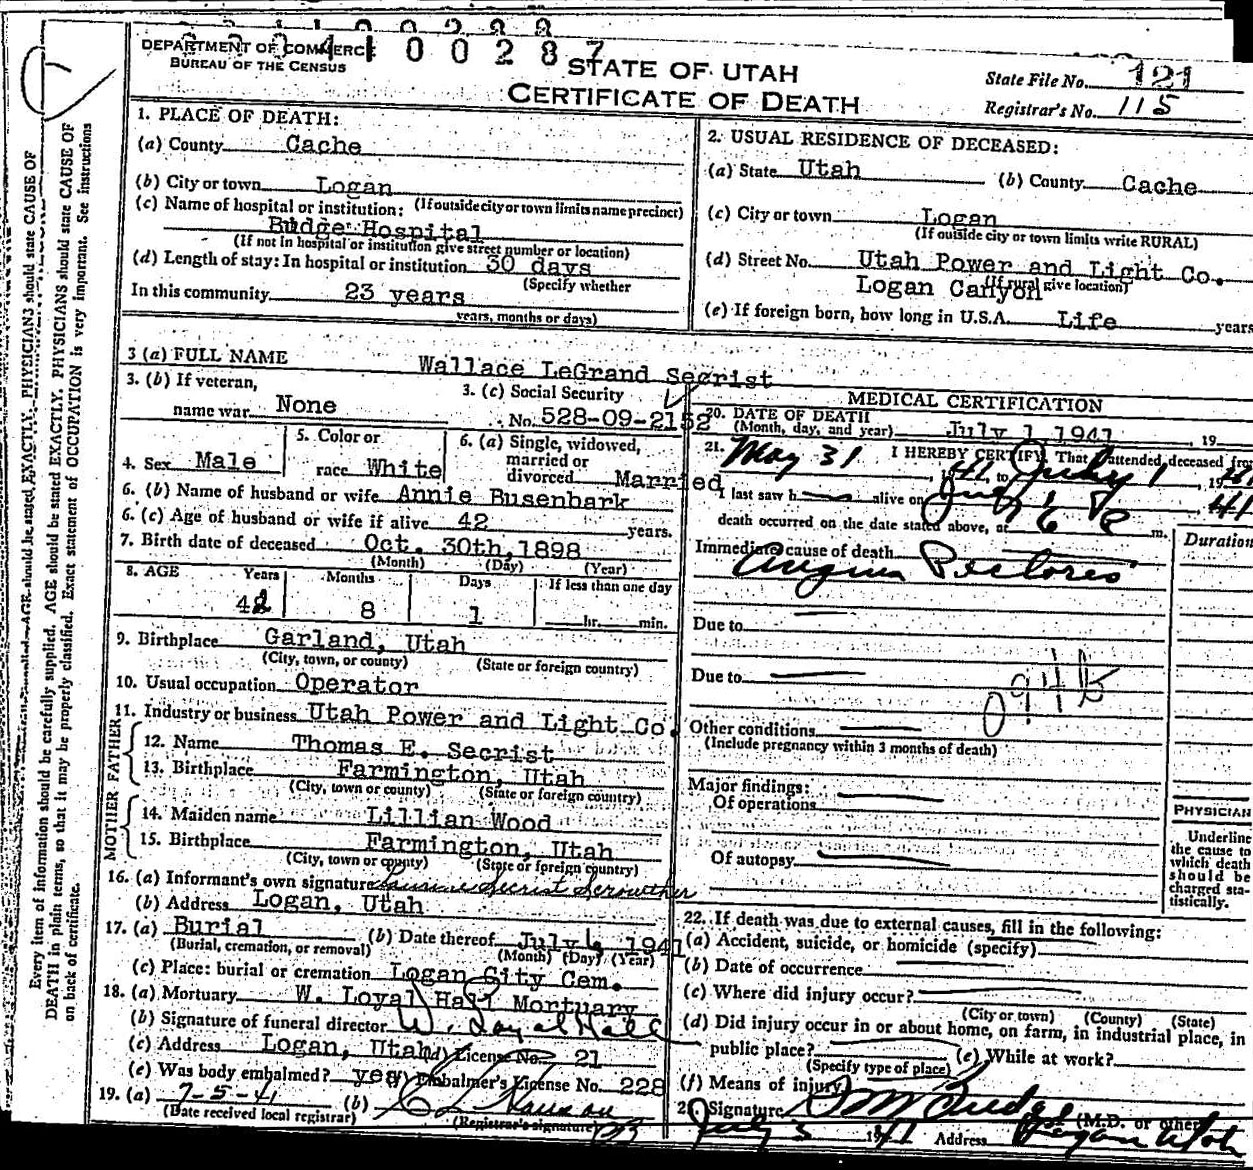 DEPARTMENT OF COMMERCE
BUREAU OF THE CENSUS
00287
STATE OF UTAH
CERTIFICATE OF DEATH
State File No. 121
Registrar's No. 115
Every item of information should be carefully supplied. AGE should be stated EXACTLY. PHYSICIANS should state CAUSE OF
DEATH in plain terms, so that it may be properly classified. Exact statement of OCCUPATION is very important. See instructions
on back of certificate.
1. PLACE OF DEATH:
(a) County Cache
(b) City or town Logan
(If outside city or town limits name precinct)
(c) Name of hospital or institution:
Budge Hospital
(If not in hospital or institution give street number or location)
(d) Length of stay: In hospital or institution 30 days
(Specify whether
In this community 23 years
years, months or days)
2. USUAL RESIDENCE OF DECEASED:
(a) State Utah (b) County Cache
(c) City or town Logan
(If outside city or town limits write RURAL)
(d) Street No. Utah Power and Light Co.
Logan Canyon (If rural give location)
(e) If foreign born, how long in U.S.A. Life years
3 (a) FULL NAME Wallace LeGrand Secrist
3. (b) If veteran,
name war None
3. (c) Social Security
No. 528-09-2152
4. Sex Male
5. Color or
race White
6. (a) Single, widowed,
married or
divorced Married
6. (b) Name of husband or wife Annie Busenbark
6. (c) Age of husband or wife if alive 42 years.
7. Birth date of deceased Oct. 30th, 1898
(Month) (Day) (Year)
8. AGE Years Months Days If less than one day
42 8 1 hr. min.
9. Birthplace Garland, Utah
(City, town, or county) (State or foreign country)
10. Usual occupation Operator
11. Industry or business Utah Power and Light Co.
FATHER
12. Name Thomas E. Secrist
13. Birthplace Farmington, Utah
(City, town or county) (State or foreign country)
MOTHER
14. Maiden name Lillian Wood
15. Birthplace Farmington, Utah
(City, town or county) (State or foreign country)
16. (a) Informant's own signature Secrist Scrowther
(b) Address Logan, Utah
17. (a) Burial (b) Date thereof July 6 1941
(Burial, cremation, or removal) (Month) (Day) (Year)
(c) Place: burial or cremation Logan City Cem.
18. (a) Mortuary W. Loyal Hall Mortuary
(b) Signature of funeral director W. Loyal Hall
(c) Address Logan, Utah (d) License No. 21
(e) Was body embalmed? yes (f) Embalmer's License No. 228
19. (a) 7-5-41 (b)
(Date received local registrar) (Registrar's signature)
MEDICAL CERTIFICATION
20. DATE OF DEATH
(Month, day, and year) July 1 1941, 19
21. I HEREBY CERTIFY, That I attended deceased from
May 31, 41, to July 1, 1941
I last saw h alive on July 1, 41
death occurred on the date stated above, at 6 P m.
Duration
Immediate cause of death
Angina Pectoris
Due to
Due to
094b
Other conditions
(Include pregnancy within 3 months of death)
Major findings:
Of operations
Of autopsy
PHYSICIAN
Underline
the cause to
which death
should be
charged sta-
tistically.
22. If death was due to external causes, fill in the following:
(a) Accident, suicide, or homicide (specify)
(b) Date of occurrence
(c) Where did injury occur?
(City or town) (County) (State)
(d) Did injury occur in or about home, on farm, in industrial place, in
public place? (e) While at work?
(Specify type of place)
(f) Means of injury
Signature Budge (M.D. or other)
July 3 1941 Address Logan Utah